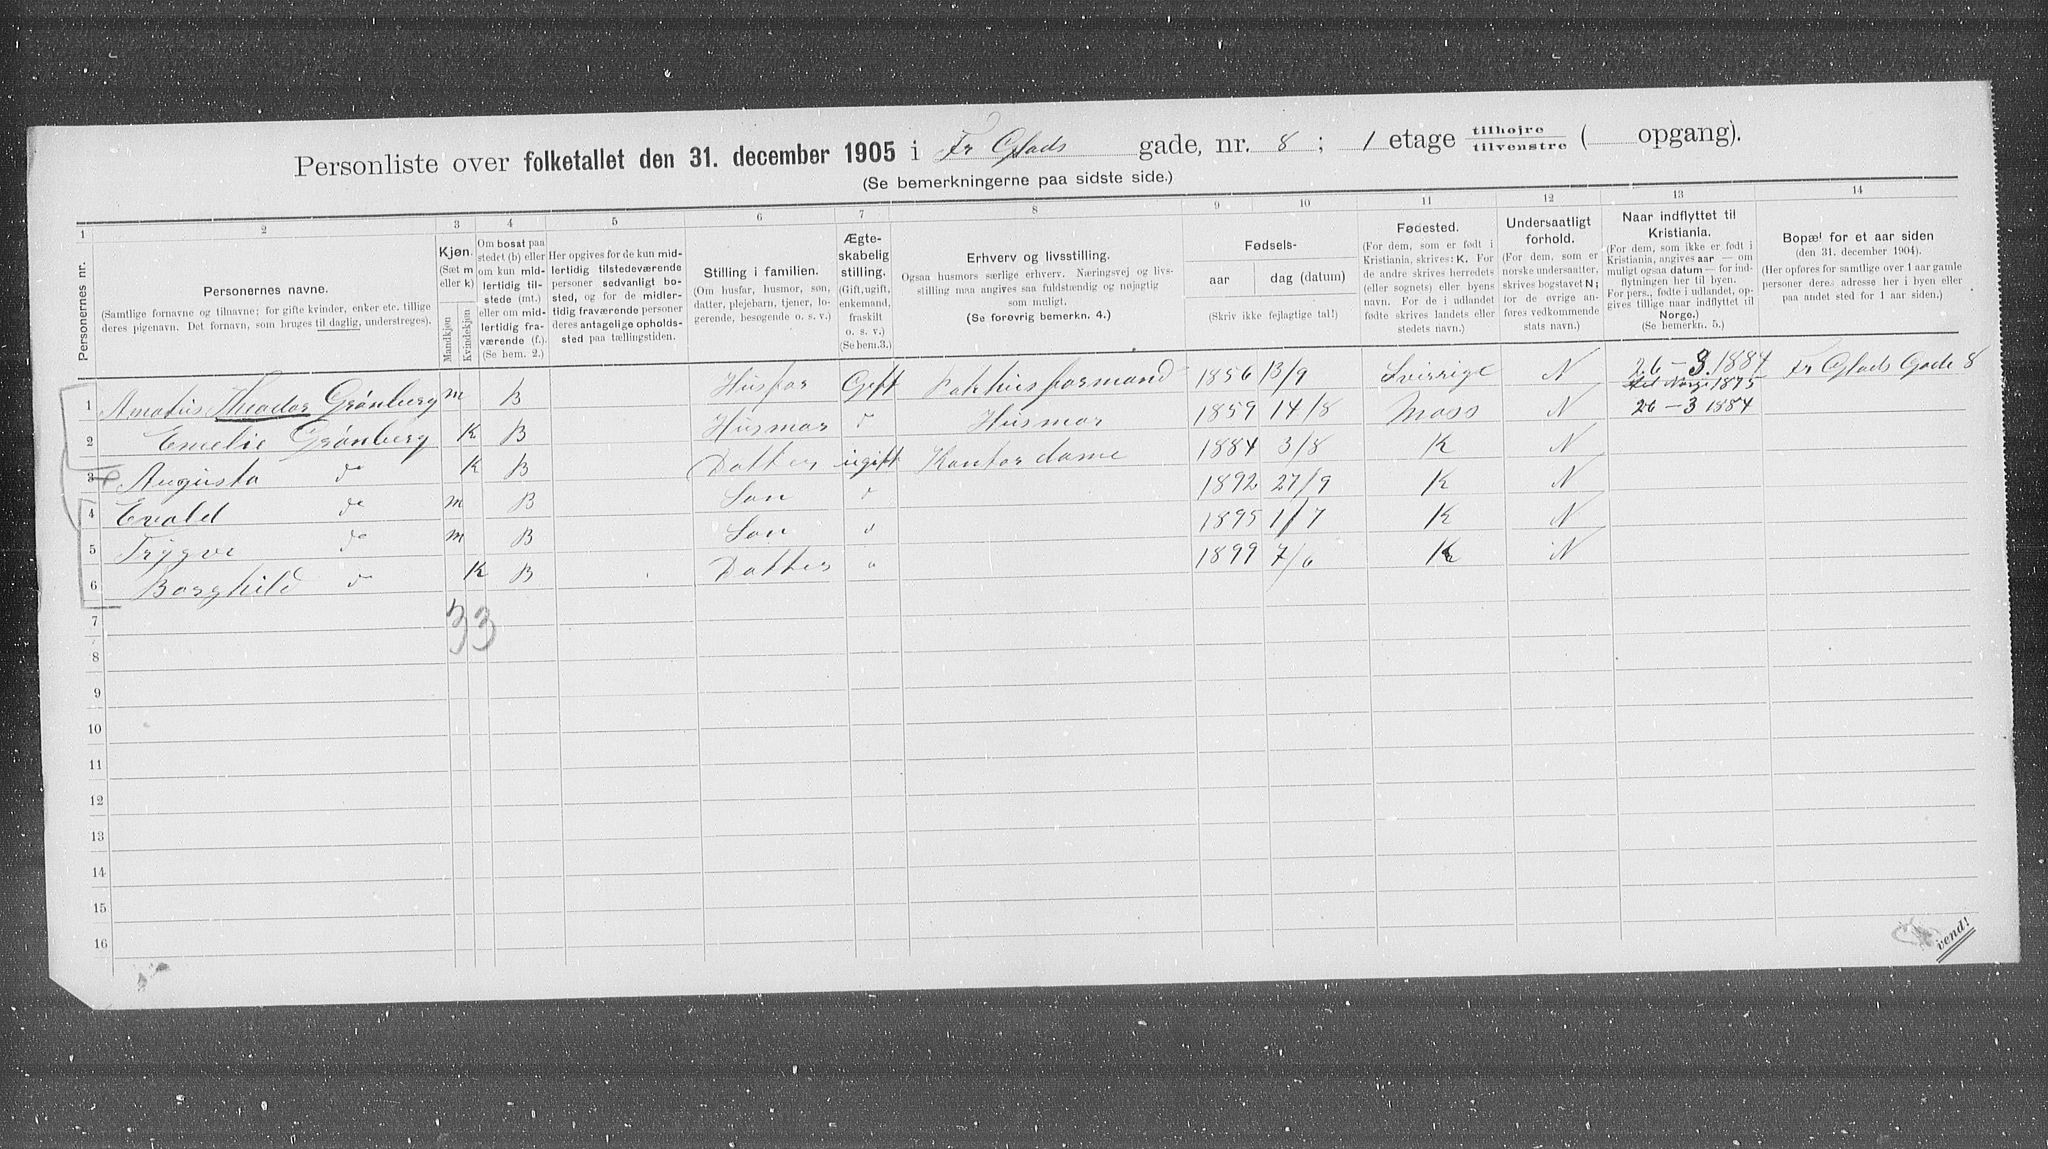 Personliste over folketallet den 31. december 1905 i Fr Glads gade, nr. 8 ; 1 etage tilhøjre tilvenstre ( opgang).
(Se bemerkningerne paa sidste side.)
1 2 3 4 5 6 7 8 9 10 11 12 13 14
Personernes nr.
Personernes navne.
(Samtlige fornavne og tilnavne; for gifte kvinder, enker etc. tillige
deres pigenavn. Det fornavn, som bruges til daglig, understreges).
Kjøn.
(Sæt m
eller k)
Mandkjøn
Kvindekjøn
Om bosat paa
stedet (b) eller
om kun mid-
lertidig til-
stede (mt.)
eller om mid-
lertidig fra-
værende (f.).
(Se bem. 2.)
Her opgives for de kun mid-
lertidig tilstedeværende
personer sedvanligt bo-
sted, og for de midler-
tidig fraværende personer
deres antagelige opholds-
sted paa tællingstiden.
Stilling i familien.
(Om husfar, husmor, søn,
datter, plejebarn, tjener, lo-
gerende, besøgende o. s. v.)
Ægte-
skabelig
stilling.
(Gift, ugift,
enkemand,
fraskilt
o. s. v.)
(Se bem.3.)
Erhverv og livsstilling.
Ogsaa husmors særlige erhverv. Næringsvej og livs-
stilling maa angives saa fuldstændig og nøjagtig
som muligt.
(Se forøvrig bemerkn. 4.)
Fødsels-
aar
dag (datum)
(Skriv ikke fejlagtige tal!)
Fødested.
(For dem, som er født i
Kristiania, skrives: K. For
de andre skrives herredets
(eller sognets) eller byens
navn. For de i udlandet
fødte skrives landets eller
stedets navn.)
Undersaatligt
forhold.
(For dem, som er
norske undersaatter,
skrives bogstavet N;
for de øvrige an-
føres vedkommende
stats navn.)
Naar indflyttet til
Kristiania.
(For dem, som ikke er født i
Kristiania, angives aar — om
muligt ogsaa datum — for ind-
flytningen her til byen.
For pers., fødte i udlandet, op-
gives tillige naar indflyttet til
Norge.)
(Se bemerkn. 5.)
Bopæl for et aar siden
(den 31. december 1904).
(Her opføres for samtlige over 1 aar gamle
personer deres adresse her i byen eller
paa andet sted for 1 aar siden.)
1 Amatus Theodor Grønberg m B Husfar Gift Pakhusformand 1856 13/9 Sverrige N 26-3.1884 til Norge 1875 Fr Glads Gade 8
2 Emelie Grønberg K B Husmor d 1859 14/8 Husmor Moss N 26-3 1884
3 Augusta do K B Datter ugift Kontordame 1884 3/8 K N
4 Evald do m B Søn d 1892 27/9 K N
5 Trygve do m B Søn d 1895 1/7 K N
6 Borghild do K B Datter d 1899 7/6 K N
33
7
8
9
10
11
12
13
14
15
16
vend!